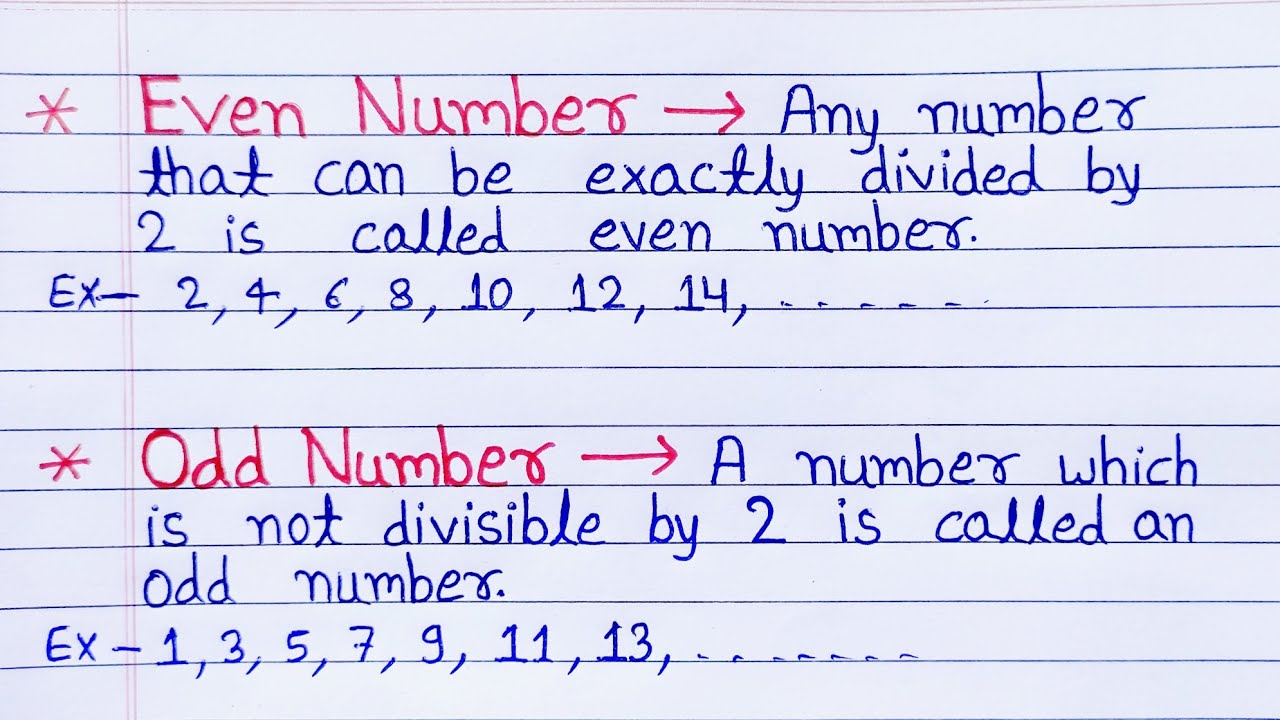 * Even Number → Any number
that can be exactly divided by
2 is called even number.
Ex- 2, 4, 6, 8, 10, 12, 14, - - - - - -
* Odd Number → A number which
is not divisible by 2 is called an
odd number.
Ex - 1, 3, 5, 7, 9, 11, 13, - - - - - - -